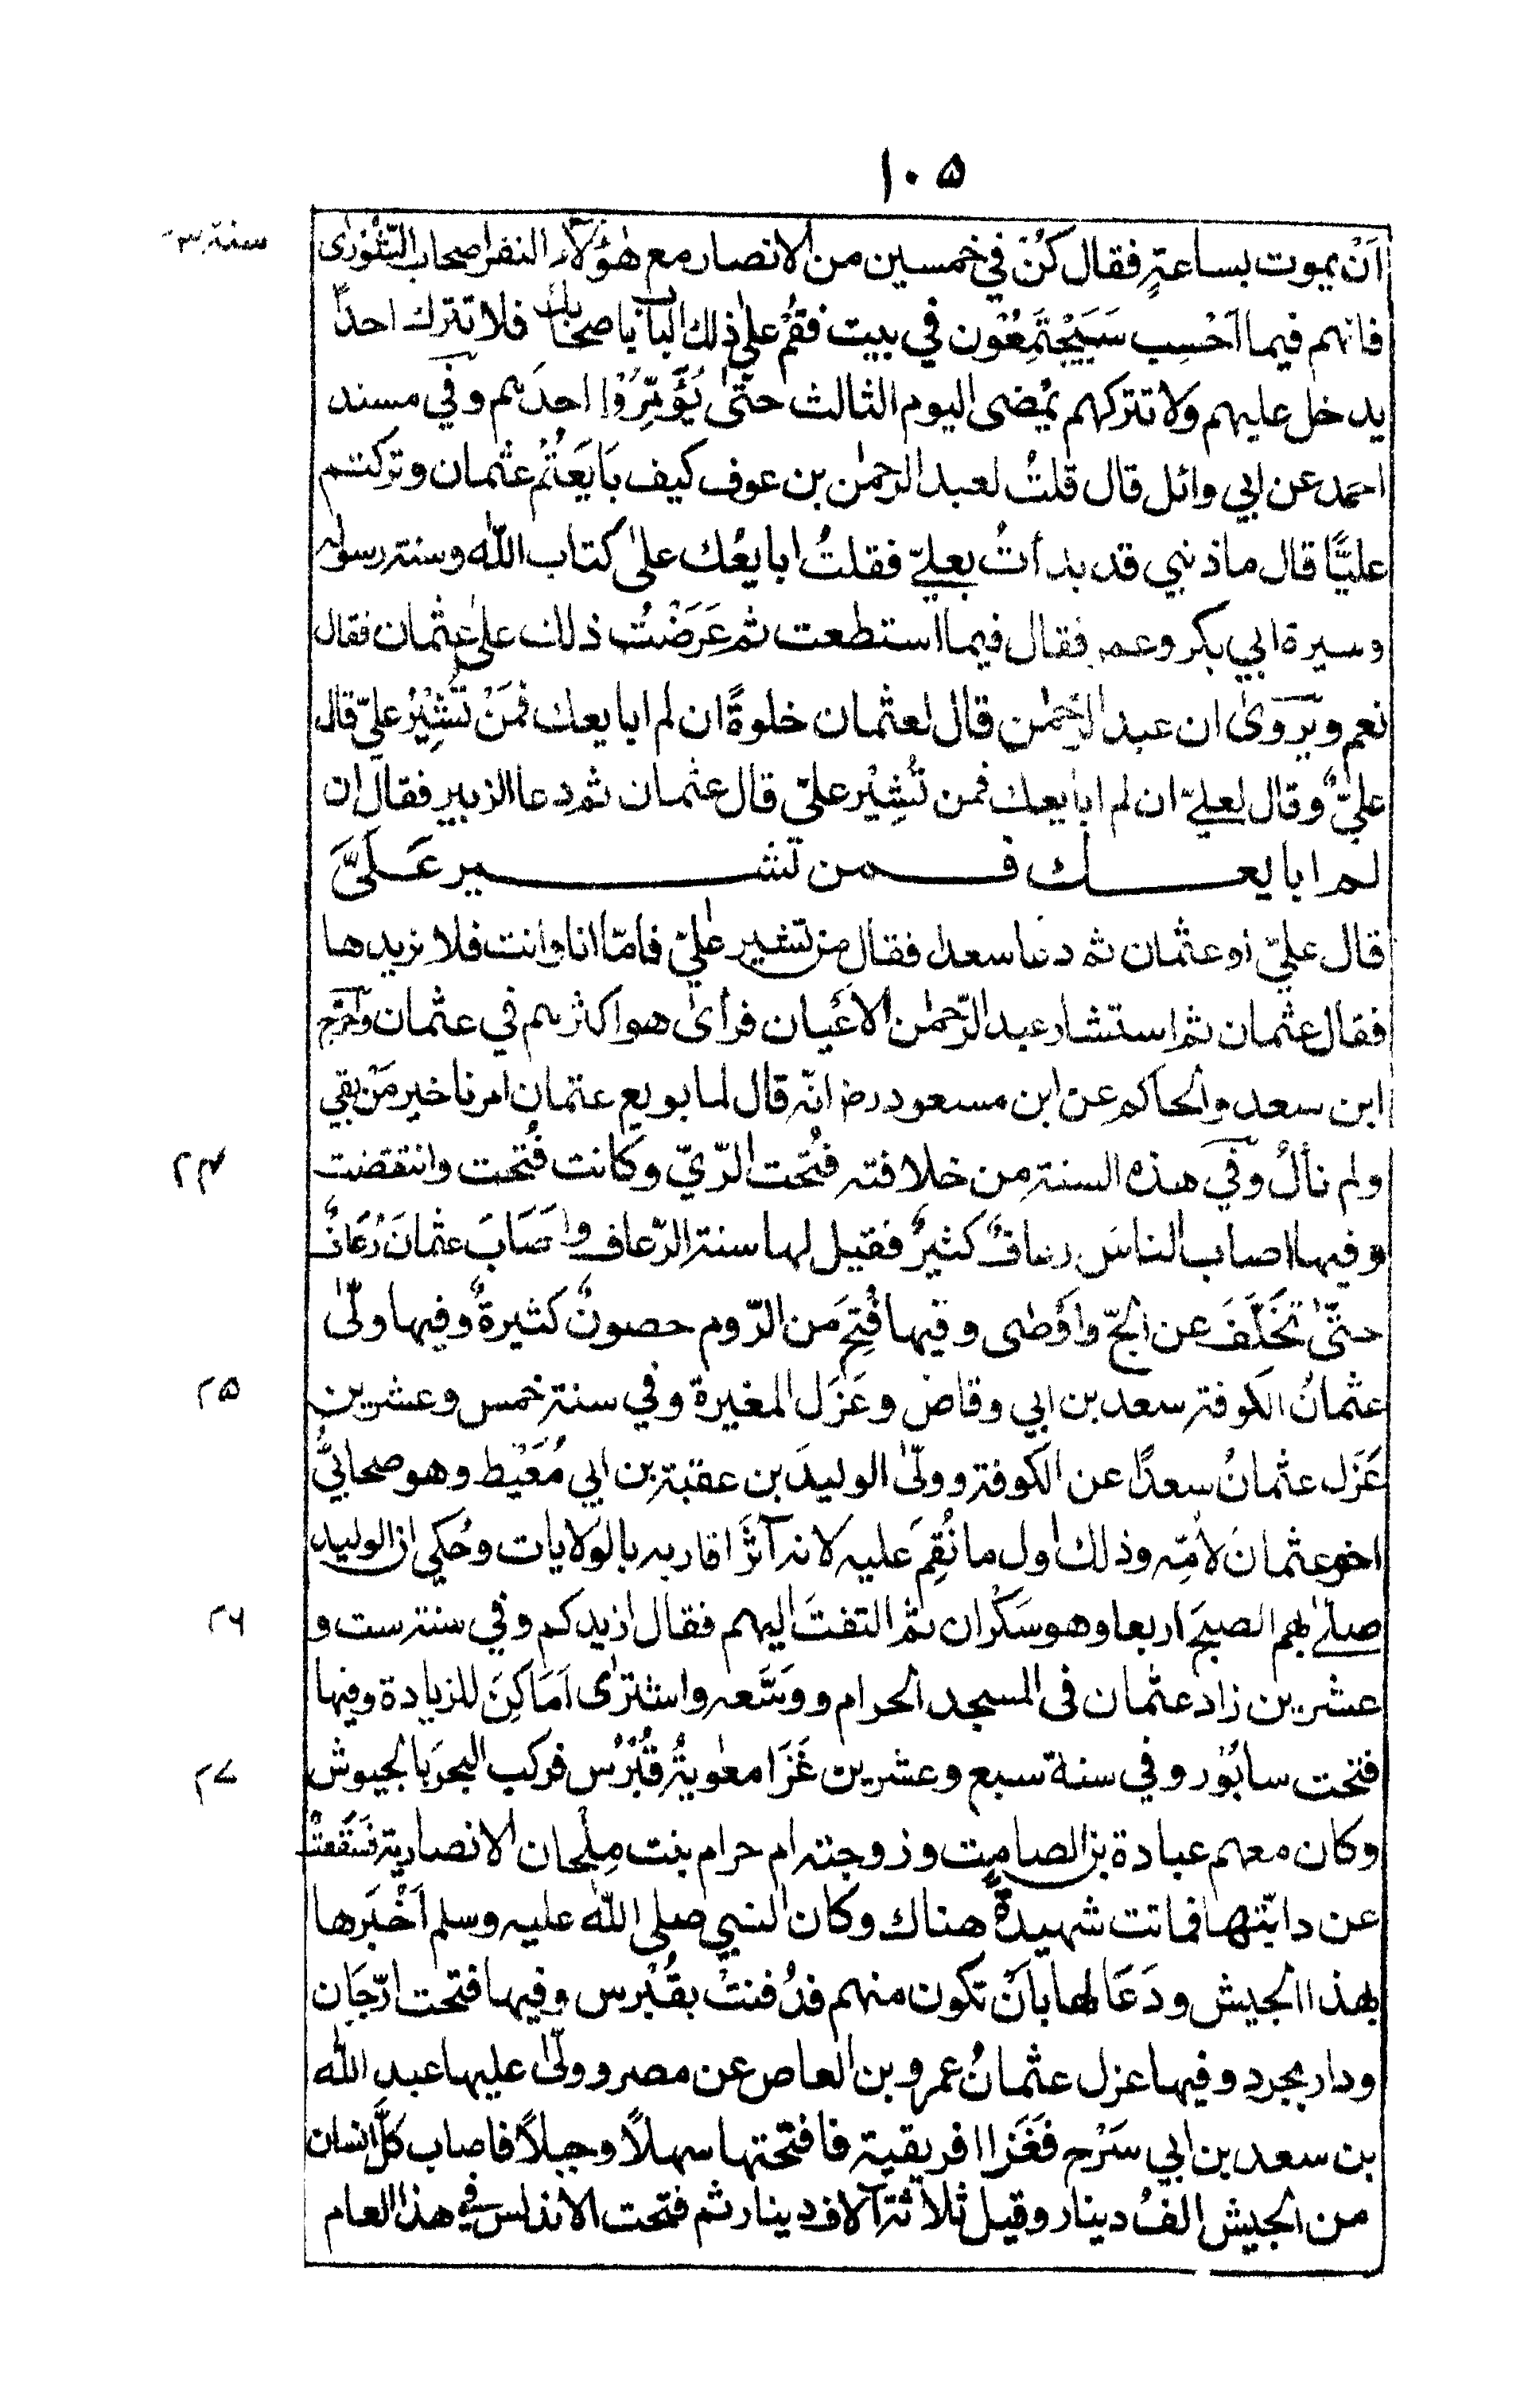 ١٠۵
سنة
اَنْ يموت بساعةٍ فقال كُنْ في خمسين من الانصار مع هٰؤلاء النفر اصحاب الشّورٰى
فانهم فيما اَحْسِب سَيَجْتَمِعُوْن في بيت فقُمْ علىٰ ذلك الباب باصحابك فلا تترك احداً
يدخل عليهم ولا تتركهم يَمْضى اليوم الثالث حتّىٰ يُؤَمِّرُوْا احدَهم وفي مسند
احمد عن ابي وائل قال قلتُ لعبد الرحمٰن بن عوف كيف بَايَعْتُمْ عثمان وتركتم
عليًّا قال ما ذنبي قد بدأتُ بعليّ فقلتُ ابايعُك علىٰ كتاب اللّٰه وسنة رسوله
وسيرة ابي بكر وعمر فقال فيما استطعت ثم عَرَضْتُ ذلك علىٰ عثمان فقال
نعم ويروىٰ ان عبد الرحمٰن قال لعثمان خلوةً ان لم ابايعك فمَنْ تُشِيْرُ عليّ قال
عليٌّ وقال لعليّ ان لم ابايعك فمن تُشِيْر عليّ قال عثمان ثم دعا الزبير فقال ان
لم ابايعك فمن تشير عَلَيَّ
قال عليّ او عثمان ثم دعا سعدا فقال من تشير عليّ فامّا انا وانت فلا نريدها
فقال عثمان ثم استشار عبد الرّحمٰن الاَعْيان فرأىٰ هوا كثرهم في عثمان واخرج
ابن سعد والحاكم عن ابن مسعود رض انّه قال لما بويع عثمان امرنا خير مَنْ بقي
ولم نألُ وفي هذه السنة من خلافته فُتحت الرّيّ وكانت فُتحت وانتقضت
٢٤
وفيها اصاب الناسَ رعافٌ كثيرٌ فقيل لها سنة الرّعاف واَصَابَ عثمانَ رُعَافٌ
حتّىٰ تَخَلَّفَ عن الحجّ واَوْصٰى وفيها فُتِحَ من الرّوم حصونٌ كثيرةٌ وفيها ولّىٰ
عثمانُ الكوفة سعد بن ابي وقاص وعَزَل المغيرة وفي سنة خمس وعشرين
٢۵
عَزَل عثمانُ سعدًا عن الكوفة وولّىٰ الوليدَ بن عقبة بن ابي مُعَيْط وهو صحابيٌّ
اخو عثمانَ لأمّه وذلك اول ما نُقِمَ عليه لانه آثَرَ اقاربه بالوَلايات وحُكي ان الوليد
صلىٰ بهم الصبحَ اربعا وهو سَكْران ثم التفتَ اليهم فقال ازيدكم وفي سنة ست و
٢٦
عشرين زاد عثمان فى المسجد الحرام ووَسَّعه واشترٰى اَمَاكِنَ للزيادة وفيها
فتحت سابُوْر وفي سنة سبع وعشرين غَزَا معٰويةُ قُبْرُس فركب البحرَ بالجيوش
٢٧
وكان معهم عبادة بن الصامت وزوجته ام حرام بنت مِلْحان الانصارية فسَقَطَتْ
عن دابّتها فماتت شهيدةً هناك وكان النبي صلى اللّٰه عليه وسلم اَخْبَرها
بهذا الجيش ودَعَا لها باَنْ تكون منهم فدُفنتْ بقُبْرس وفيها فتحت ارّجَان
ودار بجرد وفيها عزل عثمانُ عمرو بن العاص عن مصر وولّىٰ عليها عبد اللّٰه
بن سعد بن ابي سَرْح فَغَزَا افريقية فافتحتها سهلًا وجبلًا فاصاب كلَّ انسان
من الجيش الفُ دينار وقيل ثلاثةُ آلاف دينار ثم فتحت الاندلس في هذا العام